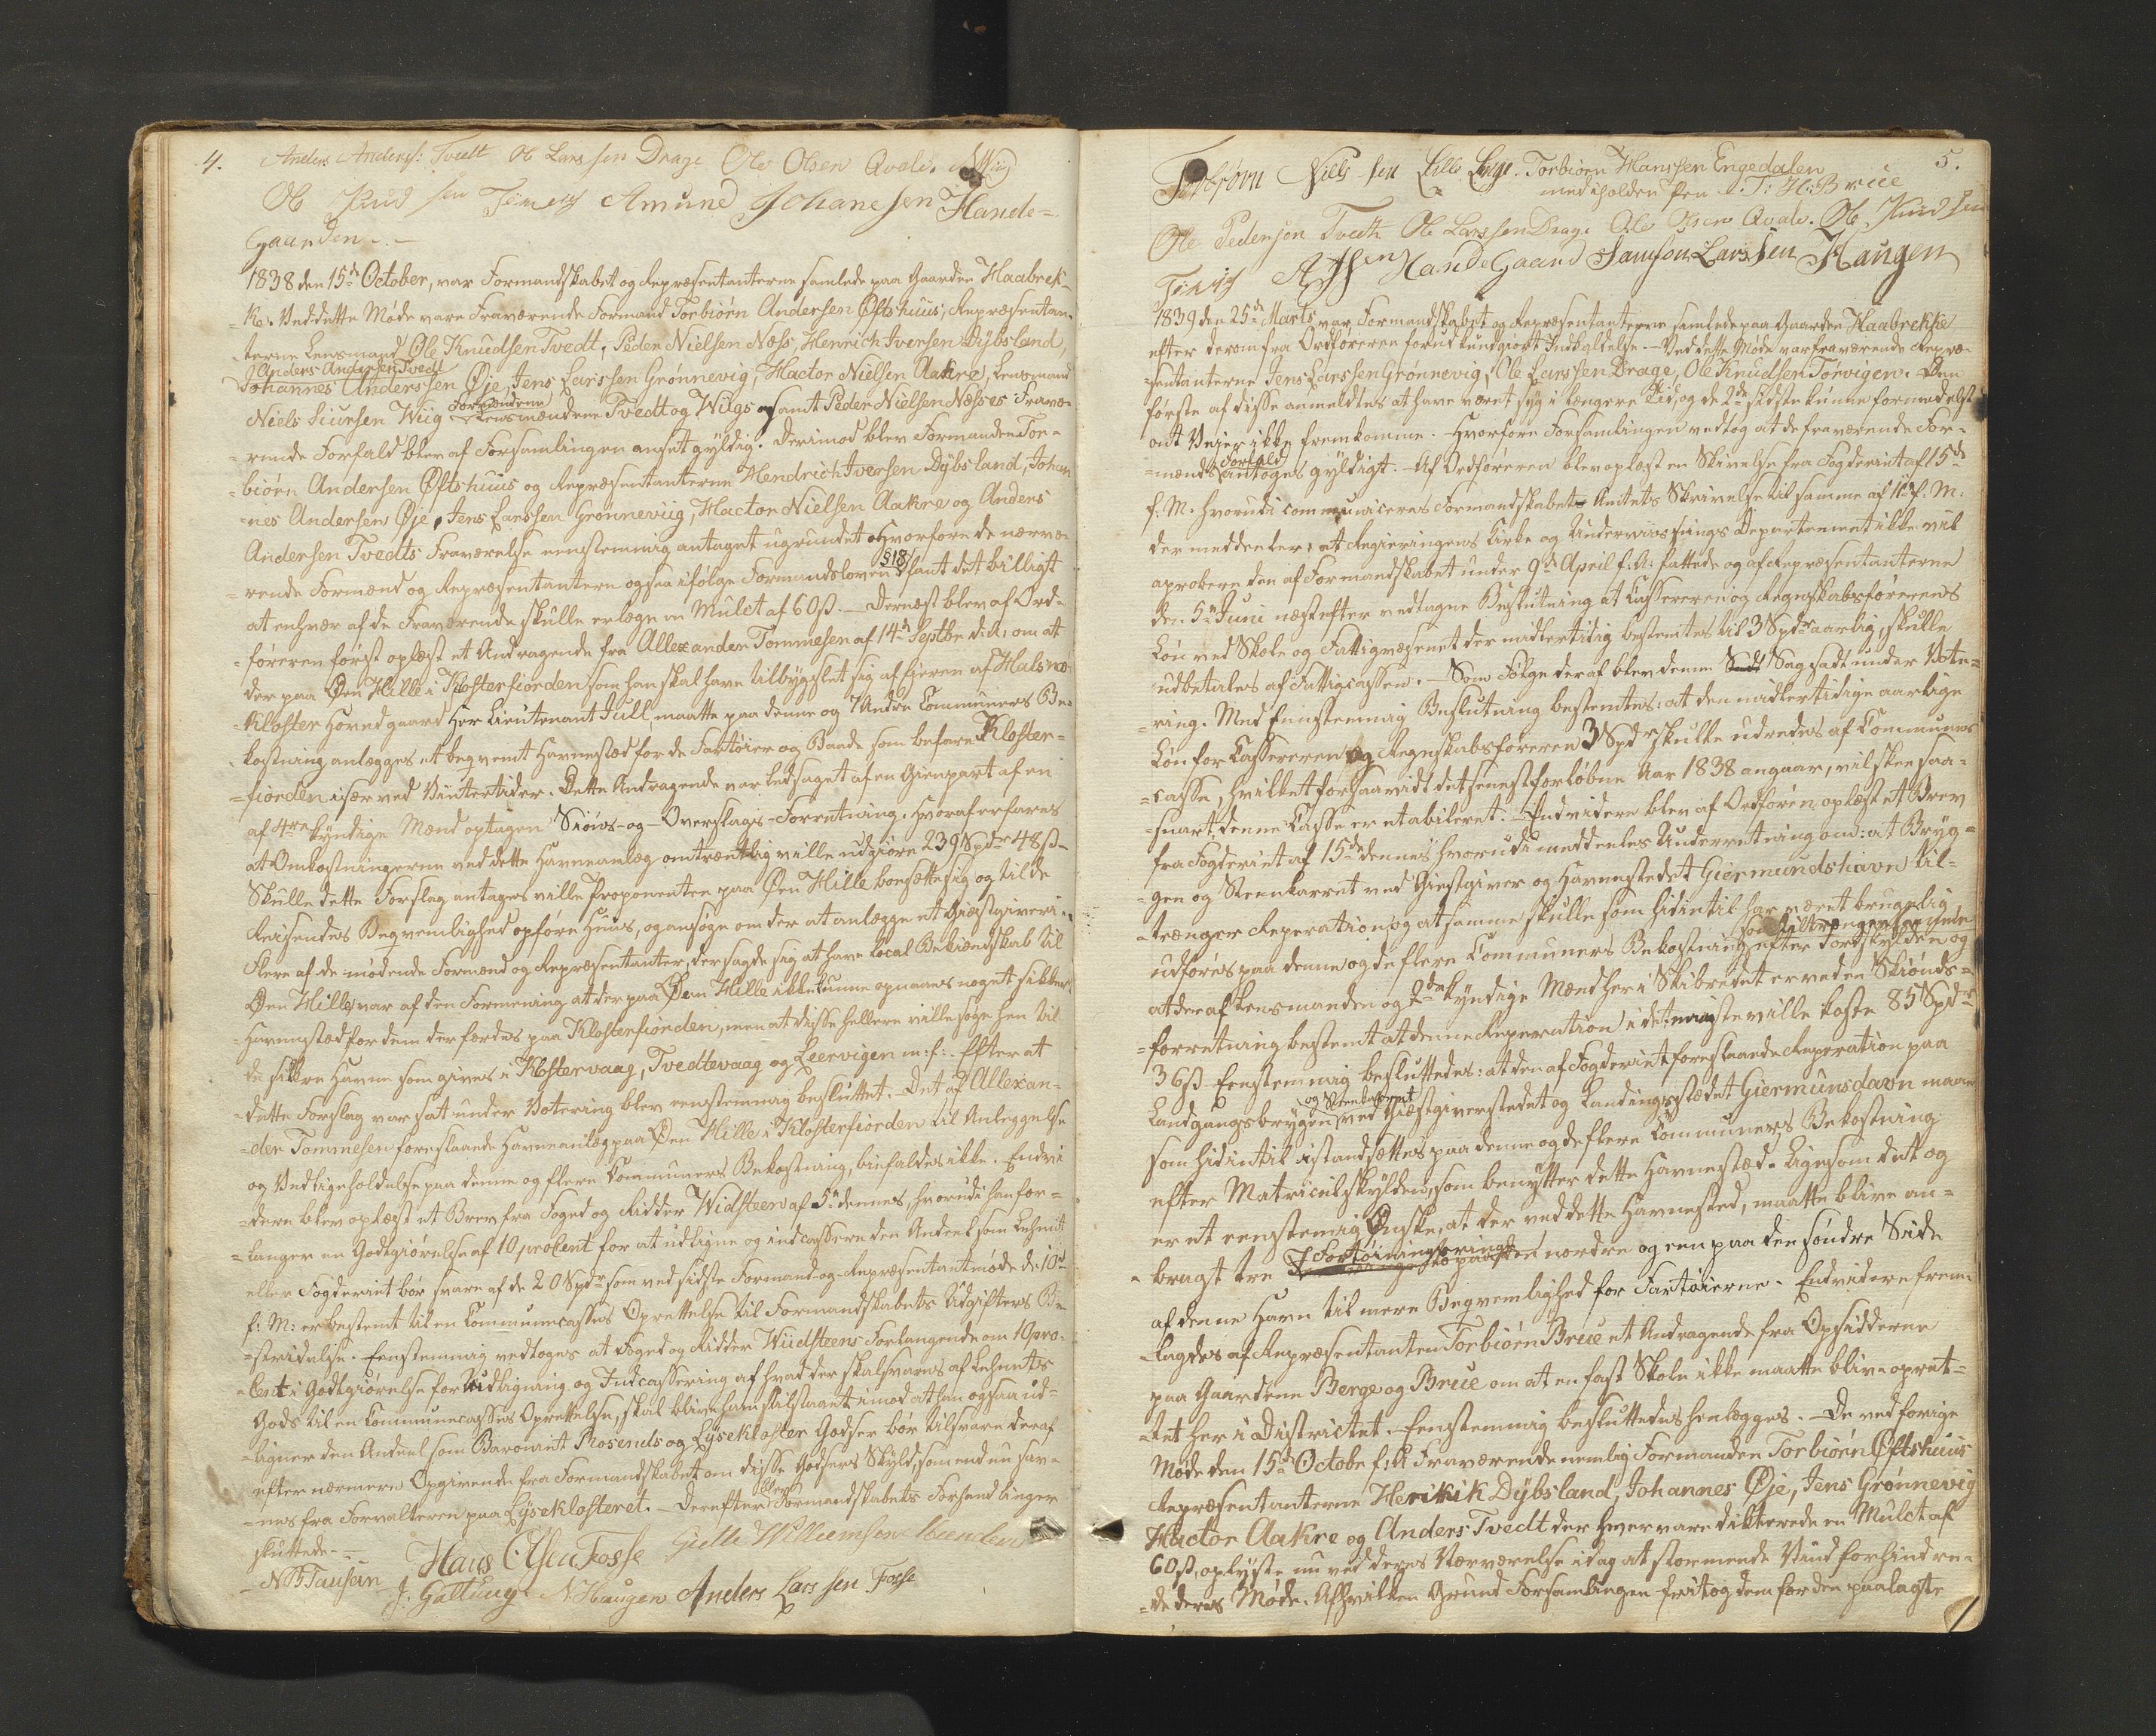 4.
Anders Anders: Tvedt Ole Larssen Drage Ole Olsen Qvale. NWiig
Ole Knud sen Tierviy Amund Johanesen Hande=
gaarden . –
1838 den 15de October, var Formandskabet og Repræsentanterne samlede paa Gaarden Haabrek-
=ke. Ved dette Møde vare Fraværende Formand Torbiørn Andersen Øfts huus, Repræsentan-
-terne Lensmand Ole Knudsen Tvedt, Peder Nielsen Næss, Henrich Iversen Dybsland,
Anders Andersen Tvedt
Johannes Anderssen Øje, Jens Larssen Grønnevig, Hactor Nielsen Aakre, Lensmand
Formændene
Niels Siursen Wiig Lensmændene Tvedt og Wiigs samt Peder Nielsen Næsses Fravæ-
-rende Forfald blev af Forsamlingen anset gyldig. Derimod blev Formanden Tor-
-biørn Andersen Øfts huus og Repræsentanterne Hendrich Iversen Dybsland, Johan
-nes Andersen Øje, Jens Larssen Grønneviig, Hactor Nielsen Aakre og Anders
Andersen Tvedts Fraværelse eenstemmig antaget ugrundet. Hvorfore de nærvæ-
§ 18
-rende Formænd og Repræsentantere ogsaa ifølge Formandsloven fant det billigt
at enhver af de Fraværende skulle erlægge en Mulct af 60ß. – Dernæst blev af Ord-
-føreren først oplæst et Andragende fra Allexander Tommesen af 14de Septbr d:A: om at
der paa Øen Hille i Klosterfiorden som han skal have tilbygslet sig af Eieren af Halsnø
-Kloster Hovedgaard Her Lieutenant Juell maatte paa denne og 7 Andre Communers Be-
kostning anlægges et beqvemt Havnested for de Fartøier og Baade som befare Kloster-
=fiorden især ved Vintertider. Dette Andragende var ledsaget af en Gienpart af en
af 4re kyndige Mænd optagen Siøns-og-Overslags-Forretning, hvoraf erfares
at Omkostningerne ved dette Havneanlæg omtrentlig ville udgiøre 239 Spdr 48ß –
Skulle dette Forslag antages ville Proponenten paa Øen Hille bosætte sig og til de
Reisendes Beqvemlighed opføre Huus, og ansøge om der at anlægge et Giæstgiveri..
Flere af de mødende Formænd og Repræsentanter, der sagde sig at have local Bekiendskab til
Øen Hille, var af den Formening at der paa Øen Hille ikke kunne opnaaes noget sikkert
Havnested for dem der færdes paa Klosterfiorden, men at disse hellere ville søge hen til
de sikre Havne som gives i Klostervaag, Tvedtevaag og Leervigen m:f:. Efter at
dette Forslag var sat under Votering blev eenstemmig besluttet. Det af Allexan-
-der Tommesen foreslaaede Havneanlæg paa Øen Hille i Klosterfiorden til Anleggelse
og Vedligeholdelse paa denne og flere Communers Bekostning, biefaldes ikke. Endvi
-dere blev oplæst et Brev fra Foged og Ridder Widsteen af 5te dennes, hvorudi han for-
=langer en Godtgiørelse af 10 procent for at udligne og indcassere den Andeel som Lehnet
eller Fogderiet bør svare af de 20 Spdr som ved sidste Formand-og-Repræsentantmøde d: 10de
f: M: er bestemt til en Communecasses Oprettelse til Formandskabets Udgifters Be-
-stridelse. Eenstemmig vedtoges at Foged og Ridder Wiidsteens Forlangende om 10 pro-
-cent i Godtgiørelse for Udligning og Indcassering af hvad der skal svares af Lehnets
Gods til en Communecasses Oprettelse, skal blive ham tilstaaet imod at han ogsaa ud-
-ligner den Andeel som Baroniet Rosends og Lysekloster Godser bør tilsvare deraf
efter nærmere Opgivende fra Formandskabet om disse Godsers Skyld, som endnu sav-
blev
-nes fra Forvalteren paa Lyseklosteret. – Derefter Formandskabets Forhandlinger
sluttede. –
N B Tausan Hans Olsen Fosse Gielle Willumsen
J. Galtung N Haugen Anders Lars sen Fosse
5.
Torbjørn Niells sen Lille Lyge. Torbiørn Hanssen Engedalen
med iholden Pen T: H: Brue
Ole Pedersen Tveth Ole Larssen Drage Ole Olsen Qvale. Ole Knud sen
Tierviy A J sen HandeGaard Samson Lars sen Haugen
1839 den 25de Marts var Formandskabet og Repræsentanterne samlede paa Gaarden Haabrekke
efter derom fra Ordføreren forud kundgiort Indkaldelse. – Ved dette Møde var fraværende Repræ-
-sentanterne Jens Larssen Grønnevig, Ole Larssen Drage, Ole Knudsen Tørvigen. Den
første af disse anmeldtes at have været syg i længere Tid, og de 2de sidste kunne formedelst
ont Veier ikke fremkomme. Hvorfore Forsamlingen vedtog at de fraværende For-
Forfald
-mænds antoges gyldigt. Af Ordføreren blev oplæst en Skrivelse fra Fogderiet af 15de
f: M. hvorudi communiceres Formandskabet Amtets Skrivelse til samme af 11te f: M:
der meddeeler: at Regieringens Kirke og Underviisnings Departement ikke vil
aprobere den af Formandskabet under 9de April f: A: fattede og af Repræsentanterne
den 5te Juni næstefter vedtagne Beslutning at Cassereren og Regnskabsførerens
Løn ved Skole og Fattigvæsenet der midlertidig bestemtes til 3 Spdr aarlig, skulle
udbetales af Fattigcassen. – Som Følge deraf blev denne Sag sadt under Vote-
-ring. Med Eenstemmig Beslutning bestemtes: at den midlertidige aarlige
Løn for Cassereren og Regnskabsføreren 3 Spdr skulle udredes af Communens
-casse, hvilket forsaavidt det seneste forløbne Aar 1838 angaar, vil skee saa-
-snart denne Casse er etableret. – Endvidere blev af Ordføren oplæst et Brev
fra Fogderiet af 15de dennes hvorudi meddeeles Underretning om: at Bryg-
-gen og Steenkarret ved Giestgiver og Havnestedet Giermundshavn til-
-trænger Reperation og at samme skulle som hidintil har været brugelig
udføres paa denne og de flere Communers Bekostning efter Jordskylden og
at der af Lensmanden og 2de kyndige Mænd her i Skibredet er ved en Skiønds-
-forretning bestemt at denne Reperation i det mindste ville koste 85 Spdr
36ß Eenstemmig besluttedes: at den af Fogderiet foreslaaede Reperation paa
og Steenkarret
Landgangsbryggen ved Giæstgiverstedet og Landingsstædet Giermunsdavn maae
som hidintil istandsættes paa denne og de flere Communers Bekostning
efter Matriculskylden, som benytter dette Havnestæd. Ligesom det og
er et eenstemmig Ønske, at der ved dette Havnested, maatte blive an-
-bragt tre Fortøiningsringe to paa den nordre og een paa den søndre Side
af denne Havn til mere Beqvemlighed for Fartøierne. Endvidere frem-
-lagdes af Repræsentanten Torbiørn Brue et Andragende fra Opsidderne
paa Gaardene Berge og Brue om at en fast Skole ikke maatte blive opret-
-tet her i Districtet. Eenstemmig besluttedes henlægges. – De ved forige
Møde den 15de Octobe f: A Fraværende nemlig Formanden Torbiørn Øftshuus
Repræsentanterne Henrik Dybsland, Johannes Øje, Jens Grønnevig
Hactor Aakre og Anders Tvedt der hver vare dikterede en Mulct af
60ß, oplyste nu ved deres Nærværelse idag at stormende Vind forhindre-
-de deres Møde. Af hvilken Grund Forsamlingen fritog dem for den paalagte